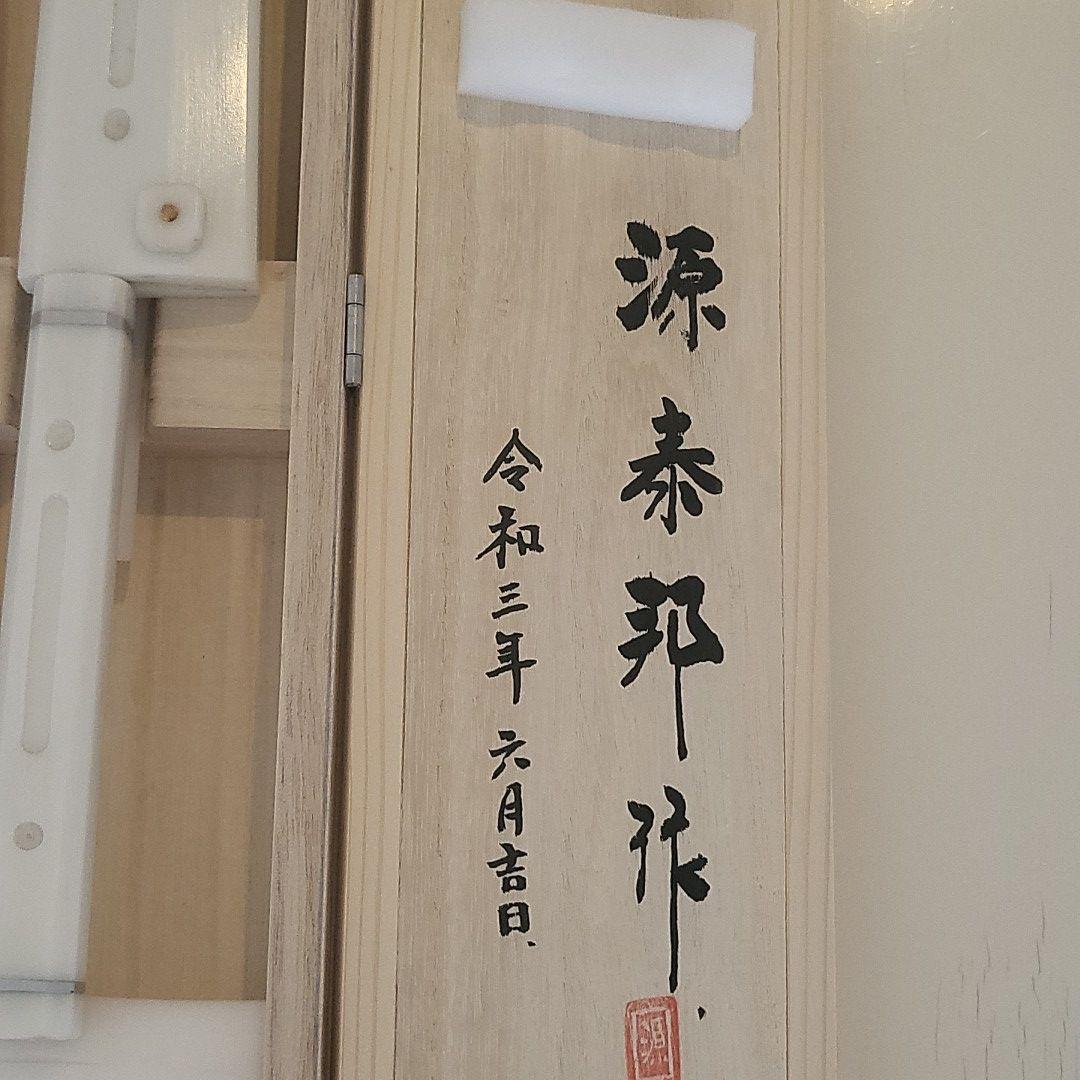 源泰邦作
令和三年六月吉日
源